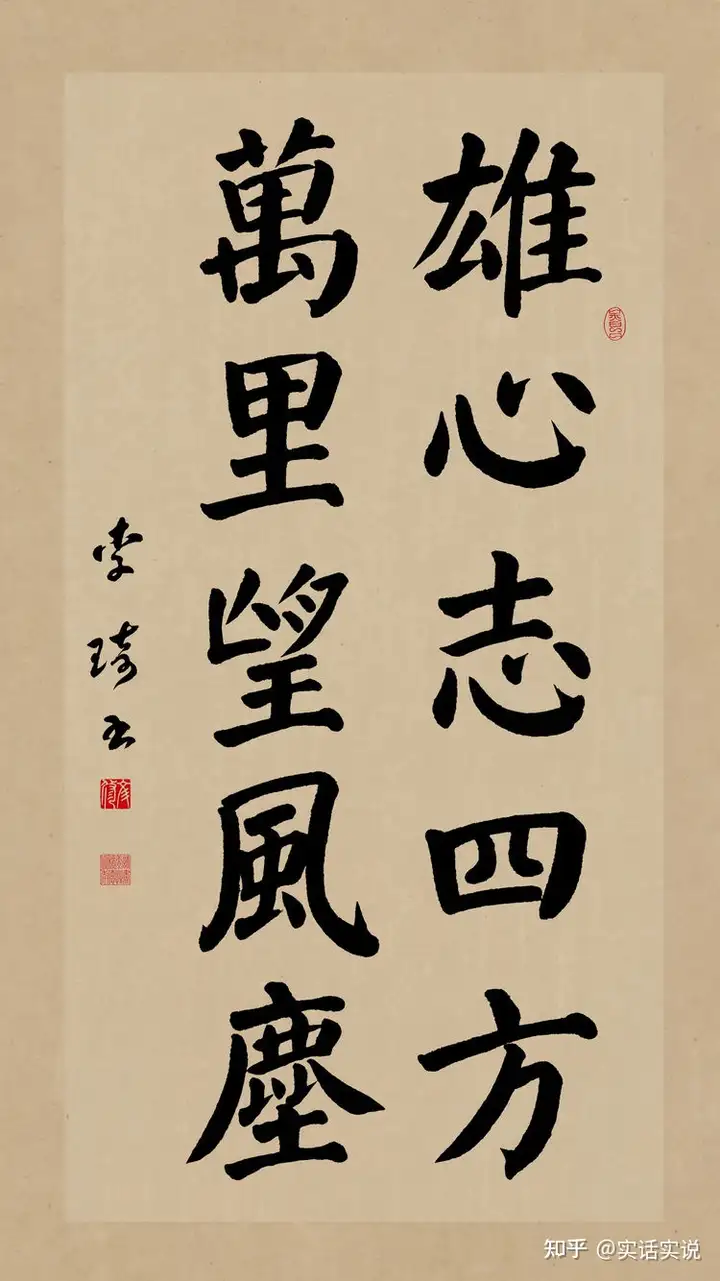 雄心志四方
萬里望風塵
李琦书
知乎 @实话实说